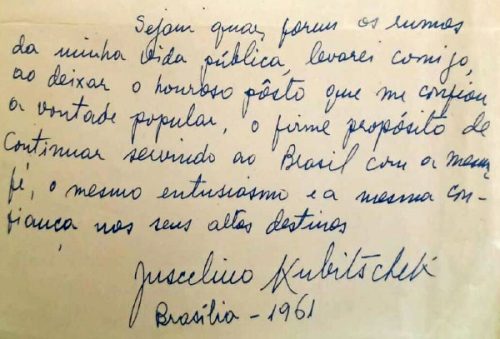 Sejam quaes forem os rumos
da minha vida pública, levarei comigo,
ao deixar o honroso pôsto que me confiou
a vontade popular, o firme propósito de
continuar servindo ao Brasil com a mesma
fé, o mesmo entusiasmo e a mesma con-
fiança nos seus altos destinos
Juscelino Kubitschek
Brasília - 1961